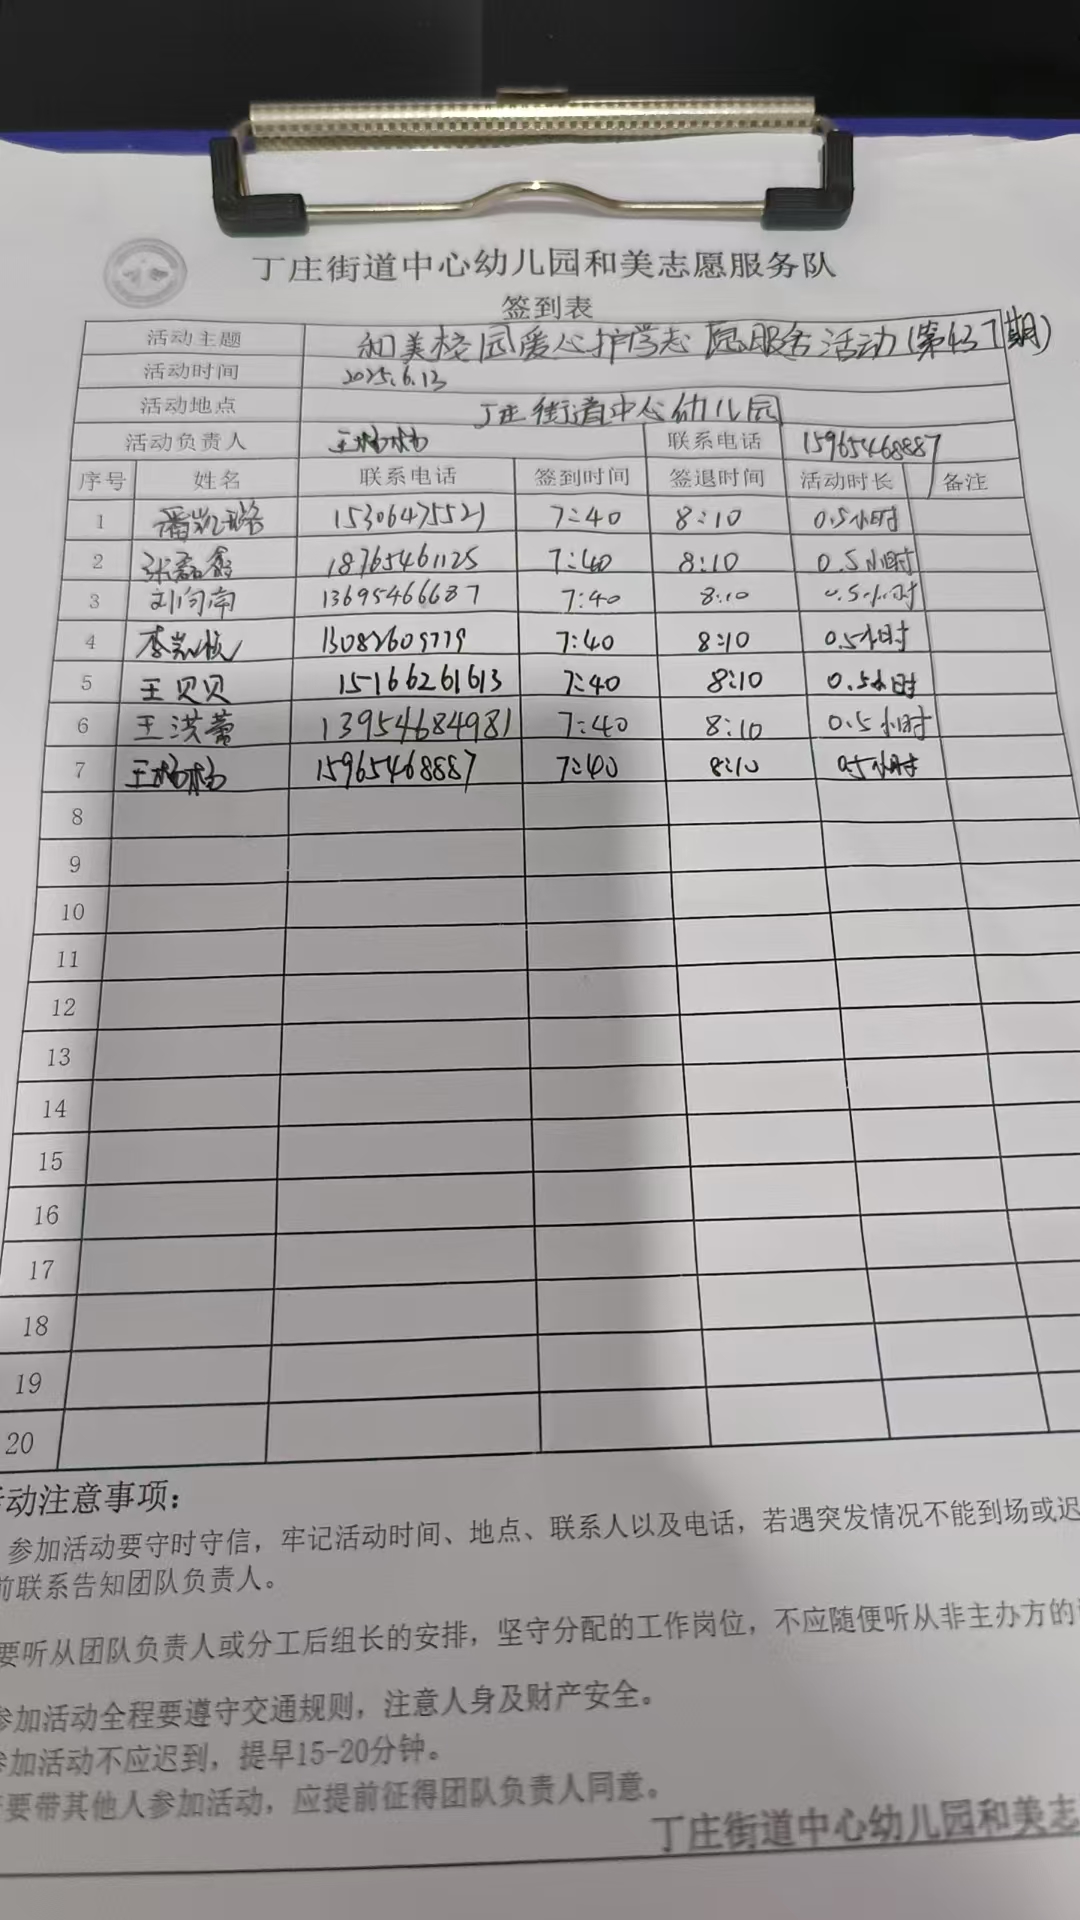 丁庄街道中心幼儿园和美志愿服务队
签到表
活动主题 和美校园爱心护学志愿服务活动(第437期)
活动时间 2025.6.13
活动地点 丁庄街道中心幼儿园
活动负责人 王杨杨 联系电话 15965468887
序号 姓名 联系电话 签到时间 签退时间 活动时长 备注
1 潘凯璐 15306475521 7:40 8:10 0.5小时
2 张磊鑫 18765461125 7:40 8:10 0.5小时
3 刘向南 13695466687 7:40 8:10 0.5小时
4 7:40 8:10 0.5小时
5 王贝贝 15166261613 7:40 8:10 0.5小时
6 王洪蕾 13954684981 7:40 8:10 0.5小时
7 王杨杨 15965468887 7:40 8:10 0.5小时
8
9
10
11
12
13
14
15
16
17
18
19
20
动注意事项:
参加活动要守时守信,牢记活动时间、地点、联系人以及电话,若遇突发情况不能到场或迟
前联系告知团队负责人。
要听从团队负责人或分工后组长的安排,坚守分配的工作岗位,不应随便听从非主办方的
参加活动全程要遵守交通规则,注意人身及财产安全。
参加活动不应迟到,提早15-20分钟。
要带其他人参加活动,应提前征得团队负责人同意。
丁庄街道中心幼儿园和美志